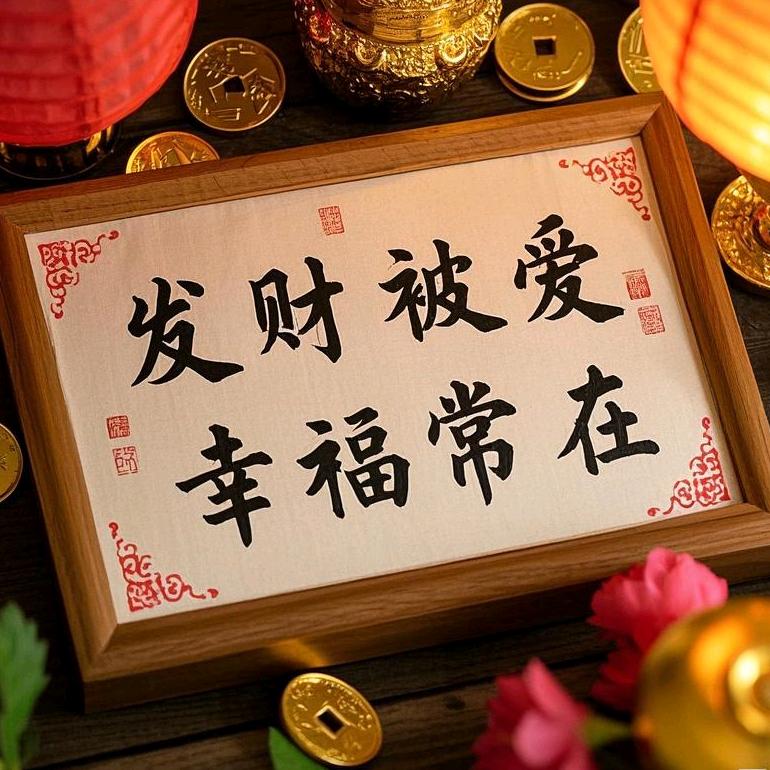 发财被爱
幸福常在